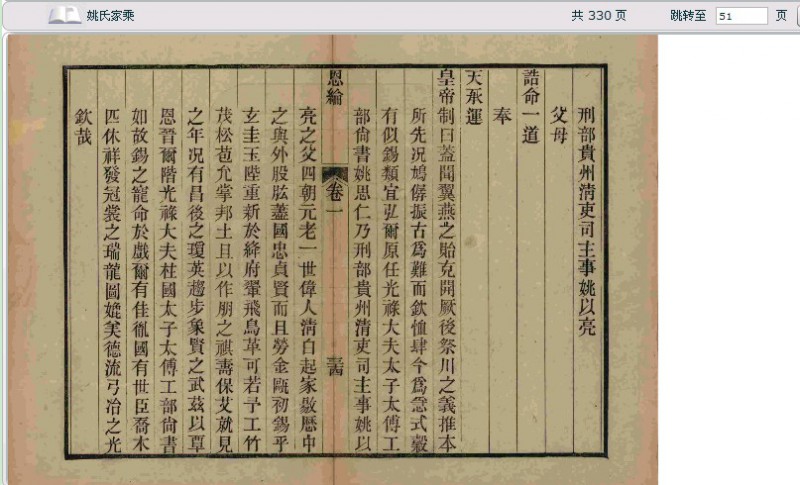 姚氏家乘
共 330 页
跳转至 51 页
刑部貴州清吏司主事姚以亮
父母
誥命一道
奉
天承運
皇帝制曰蓋聞翼燕之貽克開厥後祭川之義推本
所先況鳩孱振古爲難而欽恤肆今爲急式穀
有似錫類宜弘爾原任光祿大夫太子太傅工
部尚書姚思仁乃刑部貴州清吏司主事姚以
恩綸 卷一
亮之父四朝元老一世偉人清白起家敭歷中
之與外股肱藎國忠貞賢而且勞金甌初錫乎
玄圭玉陛重新於絳府翬飛鳥革可若予工竹
茂松苞允掌邦土且以作朋之祺壽保艾就見
之年况有昌後之瓊英趨步象賢之武茲以覃
恩晉爾階光祿大夫柱國太子太傅工部尚書
如故錫之寵命於戲爾有佳㣧國有世臣喬木
匹休祥發冠裳之瑞龍圖媲美德流弓冶之光
欽哉